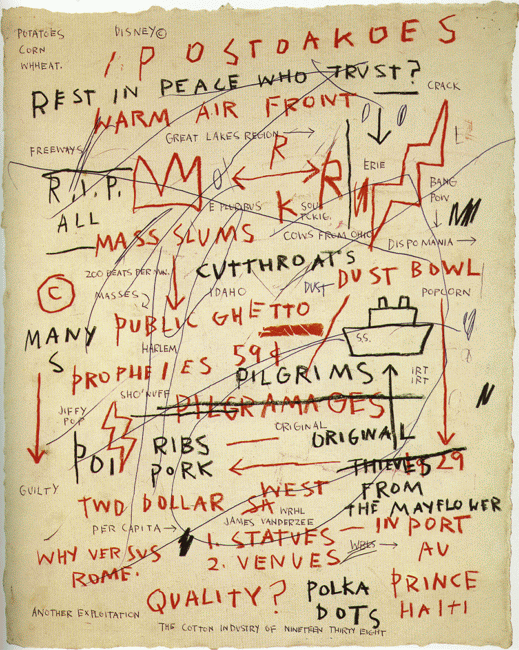 POTATOES
CORN
WHHEAT.
DISNEY©
¡POSTDAKOES
REST IN PEACE WHO TRUST?
WARM AIR FRONT
CRACK
GREAT LAKES REGION →
FREEWAYS
R
ERIE
R.I.P.
R
BANG
POW
E PLURIBUS
K
ALL
COWS FROM OHIO
MASS SLUMS
DISPOMANIA →
CUTTHROATS
200 BEATS PER MIN.
DUST BOWL
©
MASSES
IDAHO
DUST
POPCORN
PUBLIC GHETTO
MANY
S
S.S.
HARLEM
59¢
PROPHEIES
PILGRIMS
IRT
IRT
SHO'NUFF
PILGRAMAGES
JIFFY
POP
ORIGINAL
ORIGINAL
POI
RIBS
PORK
THIEVES
29
GUILTY
WEST
FROM
THE MAYFLOWER
TWO DOLLAR
SA
WRHL
JAMES VANDERZEE
PER CAPITA →
1. STATUES — IN PORT
2. VENUES
AU
WHY VERSUS
ROME.
QUALITY?
POLKA
DOTS
PRINCE
HAITI
ANOTHER EXPLOITATION
THE COTTON INDUSTRY OF NINETEEN THIRTY EIGHT